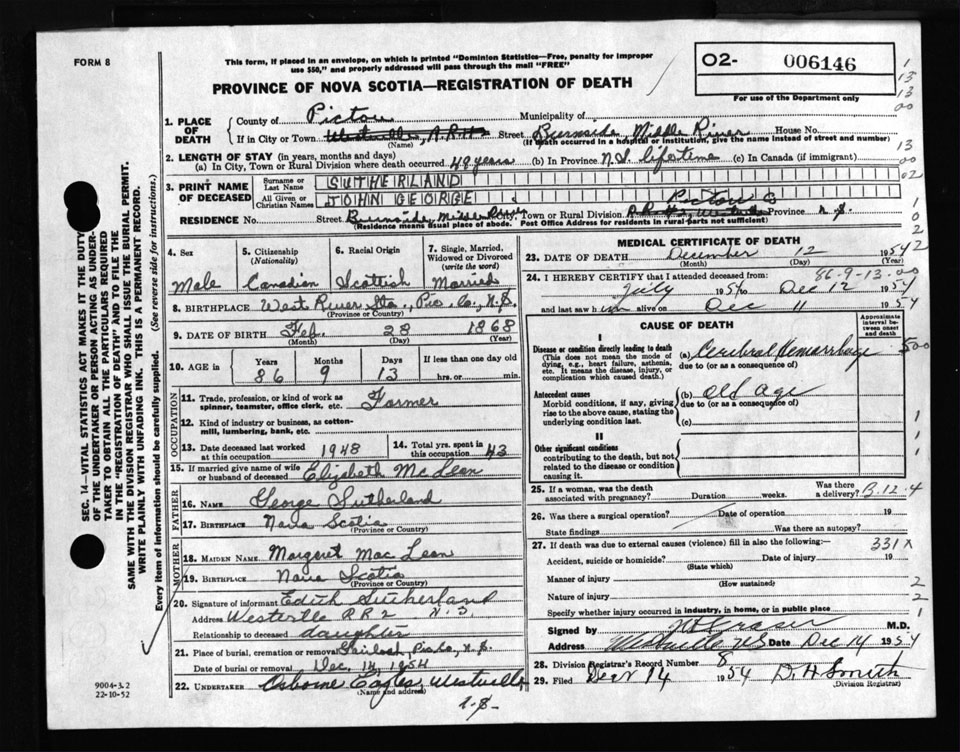 FORM 8
This form, if placed in an envelope, on which is printed "Dominion Statistics—Free, penalty for improper
use $50," and properly addressed will pass through the mail "FREE"
PROVINCE OF NOVA SCOTIA—REGISTRATION OF DEATH
O2- 006146
For use of the Department only
1. PLACE OF DEATH
County of Pictou Municipality of
If in City or Town Westville, R.R. Street Burnside, Middle River House No.
(Name) (If death occurred in a hospital or institution, give the name instead of street and number)
2. LENGTH OF STAY (in years, months and days)
(a) In City, Town or Rural Division where death occurred 49 years (b) In Province N.S. lifetime (c) In Canada (if immigrant)
3. PRINT NAME OF DECEASED
Surname or Last Name SUTHERLAND
All Given or Christian Names JOHN GEORGE
Pictou
RESIDENCE No. Street Burnside, Middle River City, Town or Rural Division Westville Province N.S.
(Residence means usual place of abode. Post Office Address for residents in rural parts not sufficient)
4. Sex
Male
5. Citizenship
(Nationality)
Canadian
6. Racial Origin
Scottish
7. Single, Married, Widowed or Divorced
(write the word)
Married
8. BIRTHPLACE West River Sta., Pic. Co., N.S.
(Province or Country)
9. DATE OF BIRTH Feb. 28 1868
(Month) (Day) (Year)
10. AGE in Years Months Days If less than one day old
86 9 13 hrs. or min.
OCCUPATION
11. Trade, profession, or kind of work as
spinner, teamster, office clerk, etc. Farmer
12. Kind of industry or business, as cotton-
mill, lumbering, bank, etc.
13. Date deceased last worked
at this occupation 1948
14. Total yrs. spent in
this occupation 43
15. If married give name of wife
or husband of deceased Elizabeth McLeon
FATHER
16. NAME George Sutherland
17. BIRTHPLACE Nova Scotia
(Province or Country)
MOTHER
18. MAIDEN NAME Margaret MacLeon
19. BIRTHPLACE Nova Scotia
(Province or Country)
20. Signature of informant Edith Sutherland
Address Westville RR2 N.S
Relationship to deceased daughter
21. Place of burial, cremation or removal Gairloch, Pic. Co., N.S.
Date of burial or removal Dec. 14, 1954
22. UNDERTAKER Osborne Eagles, Westville
(Name and address)
N.S.
MEDICAL CERTIFICATE OF DEATH
23. DATE OF DEATH December 12 1954
(Month) (Day)
24. I HEREBY CERTIFY that I attended deceased from: 86-9-13-00
July 1954 to Dec 12 1954
and last saw him alive on Dec 11 1954
CAUSE OF DEATH
Approximate interval between onset and death
I
Disease or condition directly leading to death
(This does not mean the mode of
dying, e.g., heart failure, asthenia,
etc. It means the disease, injury, or
complication which caused death.)
(a) Cerebral Hemorrhage
due to (or as a consequence of)
Antecedent causes
Morbid conditions, if any, giving
rise to the above cause, stating the
underlying condition last.
(b) Old Age
due to (or as a consequence of)
(c)
II
Other significant conditions
contributing to the death, but not
related to the disease or condition
causing it.
25. If a woman, was the death
associated with pregnancy? Duration weeks. Was there
a delivery? B.12.4
26. Was there a surgical operation? Date of operation 19
State findings Was there an autopsy?
27. If death was due to external causes (violence) fill in also the following: 331 X
Accident, suicide or homicide? Date of injury 19
(State which)
Manner of injury
(How sustained)
Nature of injury
Specify whether injury occurred in industry, in home, or in public place
Signed by M.D.
Address Westville NS Date Dec 14 1954
28. Division Registrar's Record Number 8
29. Filed Dec 14 1954 D. H Smith
(Division Registrar)
SEC. 14—VITAL STATISTICS ACT MAKES IT THE DUTY
OF THE UNDERTAKER OR PERSON ACTING AS UNDER-
TAKER TO OBTAIN ALL THE PARTICULARS REQUIRED
IN THE "REGISTRATION OF DEATH" AND TO FILE THE
SAME WITH THE DIVISION REGISTRAR WHO SHALL ISSUE THE BURIAL PERMIT.
WRITE PLAINLY WITH UNFADING INK. THIS IS A PERMANENT RECORD.
Every item of information should be carefully supplied. (See reverse side for instructions.)
9004-3.2
22-10-52
1
13
13
00
13
00
02
1
0
2
2
500
1
1
1
2
2
1
1